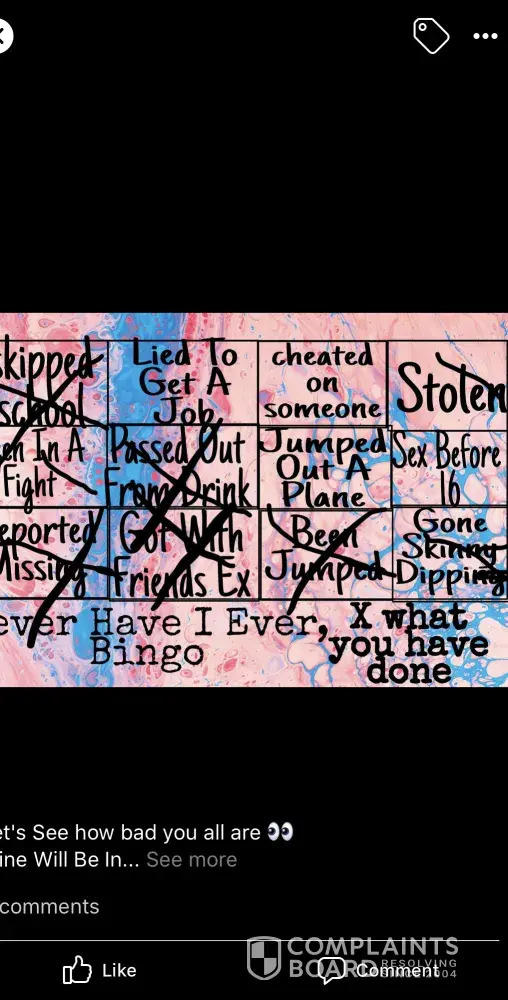 kipped
school
Lied To
Get A
Job
cheated
on
someone
Stolen
en In A
Fight
Passed Out
From Drink
Jumped
Out A
Plane
Sex Before
16
eported
Missing
Got With
Friends Ex
Been
Jumped
Gone
Skinny
Dipping
ever Have I Ever,
Bingo
X what
you have
done
et's See how bad you all are 👀
ine Will Be In... See more
comments
Like
Comment
COMPLAINTS
BOARD RESOLVING
SINCE 2004